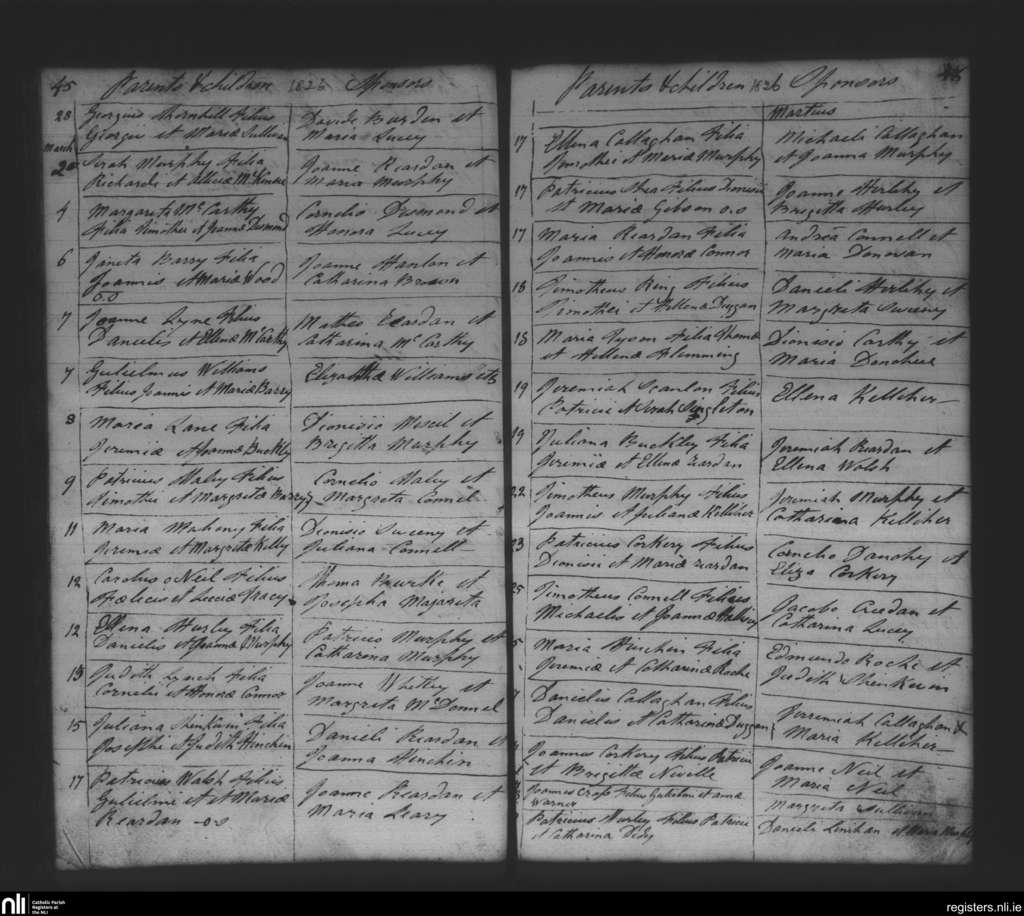 45 Parents & children 1826 Sponsors
28 Georgius Thornhill Filius
Georgii et Maria Sullivan
Davide Burden et
Maria Lucey
March
2 Sarah Murphy Filia
Richardi et Aliciæ McKenne
Joanne Reardan et
Maria Murphy
4 Margareta McCarthy
Filia Timothei et Joannæ Desmond
Cornelio Desmond et
Honora Lucey
6 Janeta Barry Filia
Joannis et Mariæ Wood
o.o
Joanne Hanlon et
Catharina Brown
7 Joanne Lyne Filius
Danielis et Ellenæ McCarthy
Matheo Reardan et
Catharina McCarthy
7 Gulielmus Williams
Filius Joannis et Mariæ Barry
Elizabetha Williams
8 Maria Lane Filia
Jeremiæ et Joannæ Buckley
Dionisio et
Brigitta Murphy
9 Patricius Haly Filius
Timothei et Margreta Barry
Cornelio Haley et
Margreta Connel
11 Maria Mahony Filia
Jeremiæ et Margretæ Kelly
Dionisio Sweeny et
Juliana Connell
12 Carolus o Neil Filius
Fælicis et Luciæ Tracy
Thoma Bourke et
Josepha Majareta
12 Ellena Hurley Filia
Danielis et Joannæ Murphy
Patricio Murphy et
Catharina Murphy
13 Judith Lynch Filia
Cornelii et Honoræ Connor
Joanne Whitley et
Margreta McDonnel
15 Juliana Filia
Josephi et Judith Hinchin
Danieli Reardan et
Joanna Hinchin
17 Patricius Walsh Filius
Gulielmi et et Mariæ
Reardan o o
Joanne Reardan et
Maria Leary
Parents & children 1826 Sponsors
Martius
17 Ellena Callaghan Filia
Timothei et Mariæ Murphy
Michaeli Callaghan
et Joanna Murphy
17 Patricius Shea Filius Dionisii
et Mariæ Gibson o.o
Joanne Herlihy et
Brigitta Hurley
17 Maria Reardan Filia
Joannis et Honoræ Connor
Andrea Connell et
Maria Donovan
18 Timotheus Ring Filius
Timothei et Hellenæ Duggan
Danieli Herlihy et
Margreta Sweeny
18 Maria Tyson Filia Thomæ
et Hellenæ Flemming
Dionisio Carthy et
Maria Donohue
19 Jeremiah Scanlon Filius
Patricii et Sarah Singleton
Ellena Kelliher
19 Juliana Buckley Filia
Jeremiæ et Ellenæ reardan
Jeremiah Reardan et
Ellena Walsh
22 Timotheus Murphy Filius
Joannis et Julianæ Kelliher
Jeremiah Murphy et
Catharina Kelliher
23 Patricius Corkery Filius
Dionisii et Mariæ reardan
Cornelio Danohy et
Eliza Corkery
25 Timotheus Connell Filius
Michaelis et Joannæ
Jacobo Creedan et
Catharina Lucey
5 Maria Hinchen Filia
Jeremiæ et Catharinæ Roche
Edmundo Roche et
Judith
Danielis Callaghan Filius
Danielis et Catharinæ Duggan
Jeremiah Callaghan &
Maria Kelliher
Joannes Corkery Filius Patricii
et Brigettæ Neville
Joanne Neil et
Maria Neil
Joannes Cross Filius Gulielmi et annæ
Warner
Margreta Sullivan
Patricius Hurley Filius Patricii
et Catharina
Danieli Linihan et Maria Murphy
nli
Catholic Parish
Registers at
the NLI
registers.nli.ie